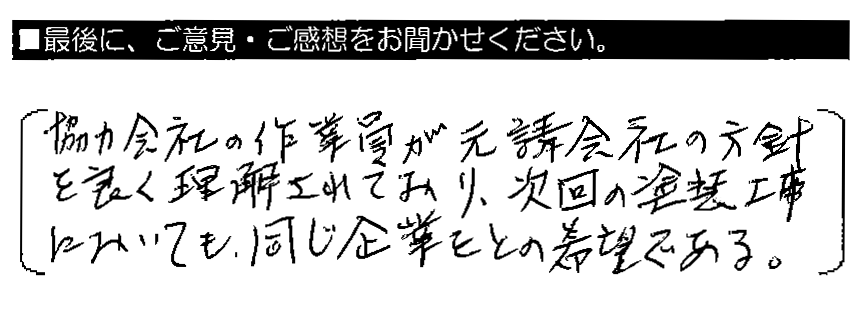 ■最後に、ご意見・ご感想をお聞かせください。
協力会社の作業員が元請会社の方針
を良く理解されており、次回の塗装工事
においても、同じ企業をとの希望である。